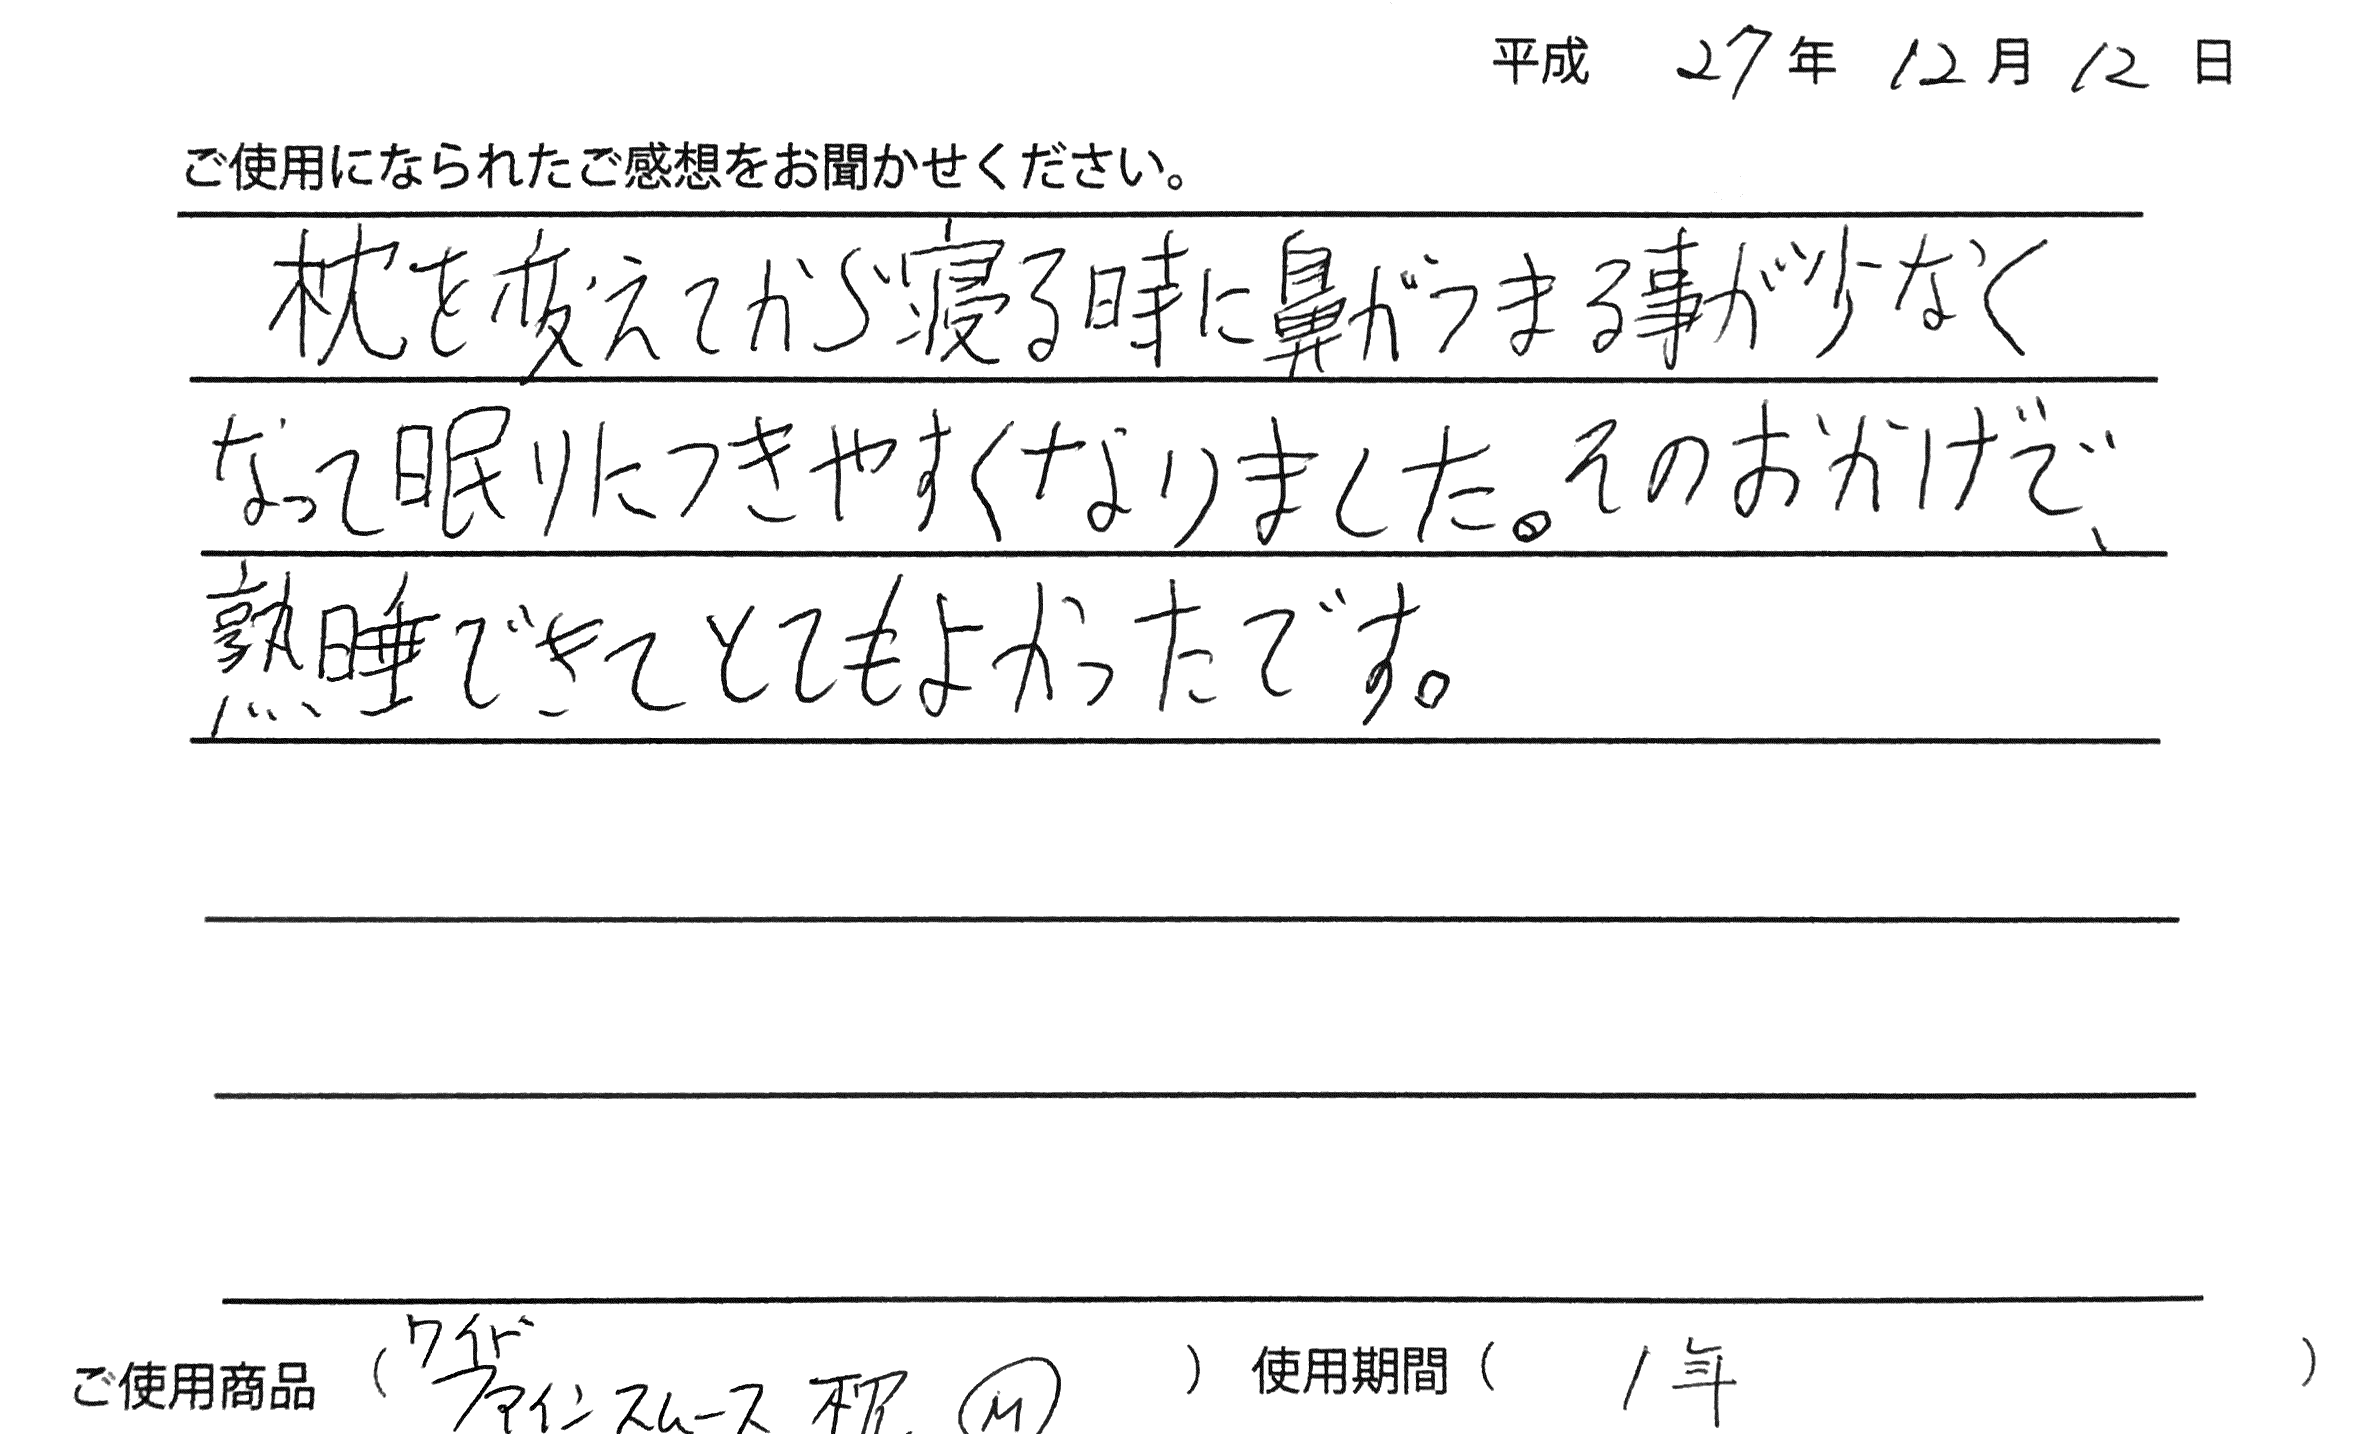 平成 27年 12月 12日
ご使用になられたご感想をお聞かせください。
枕を変えてから寝る時に鼻がつまる事が少なく
なって眠りにつきやすくなりました。そのおかげで、
熟睡できてとてもよかったです。
ワイド
ご使用商品 ( ファインスムース 枕 Ⓜ ) 使用期間 ( 1年 )